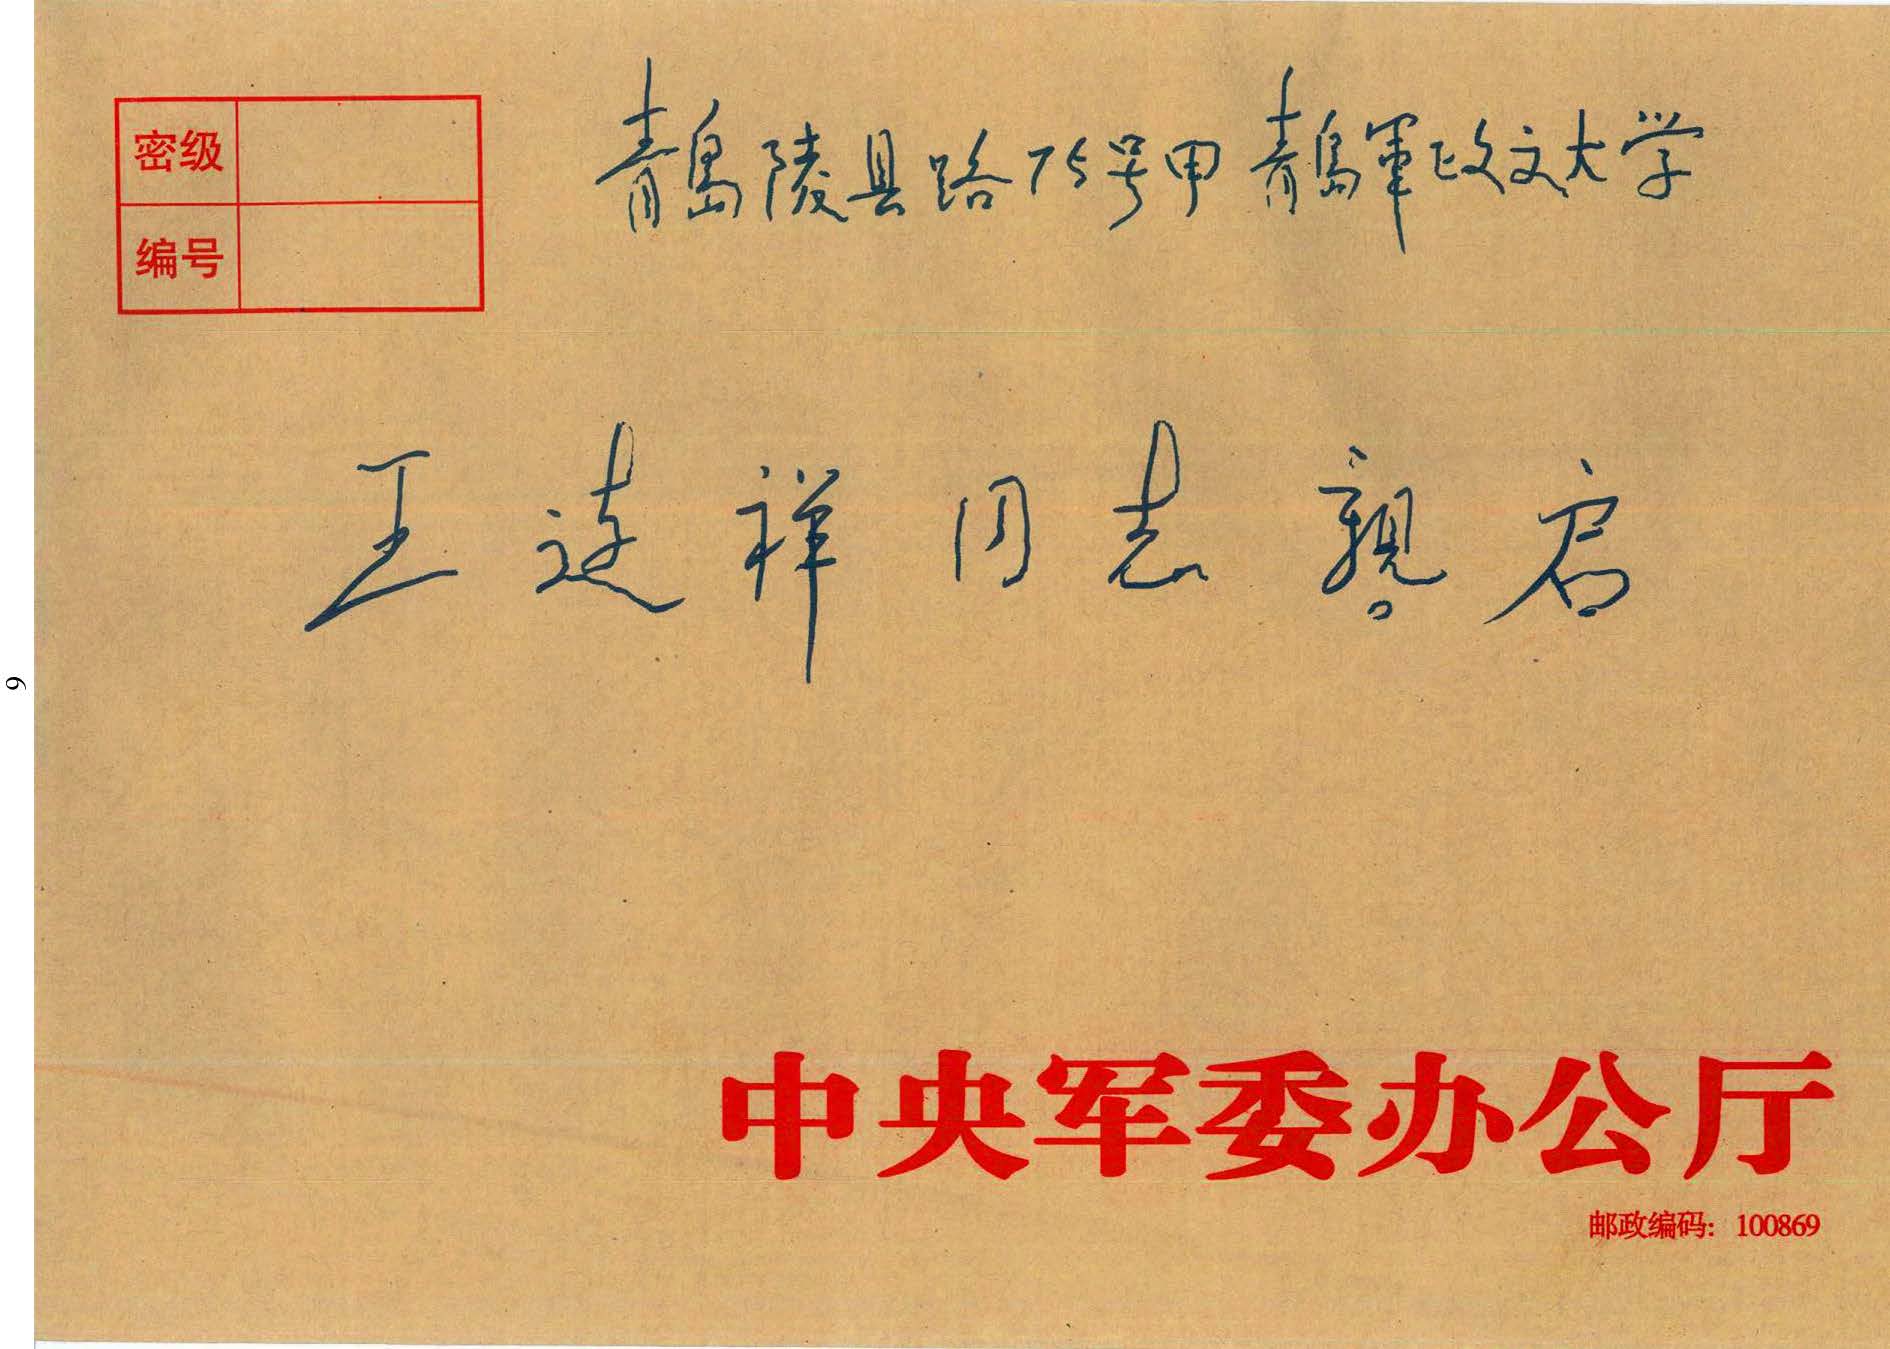 密级
编号
青岛陵县路75号甲 青岛軍政文大学
王建祥同志親启
9
中央军委办公厅
邮政编码：100869